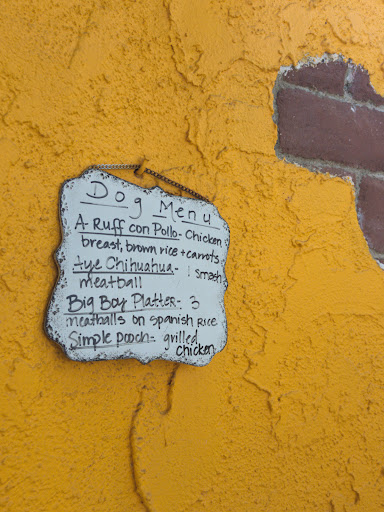 Dog Menu
A Ruff con Pollo - Chicken
breast, brown rice + carrots
Aye Chihuahua - 1 smash
meatball
Big Boy Platter - 3
meatballs on Spanish Rice
Simple pooch - grilled
chicken